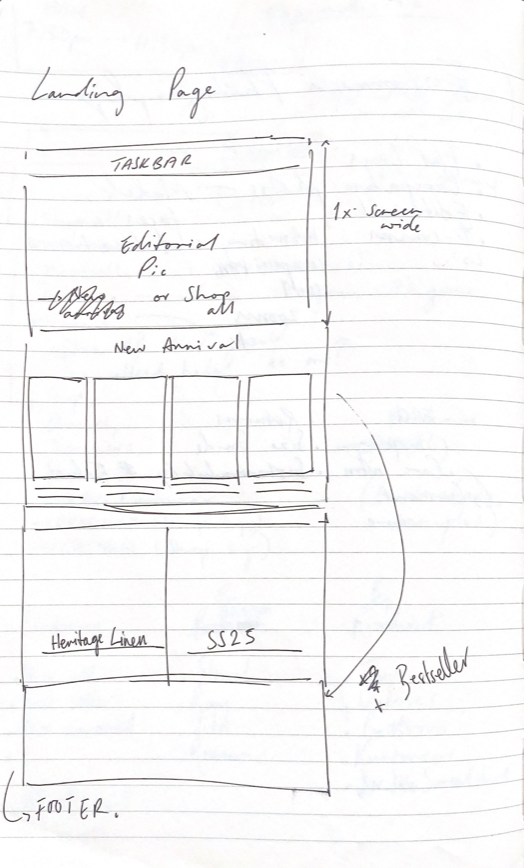 Landing Page
TASKBAR
1x screen
wide
Editorial
Pic
or Shop
all
New Arrival
Heritage Linen
SS25
Bestseller
+
FOOTER.